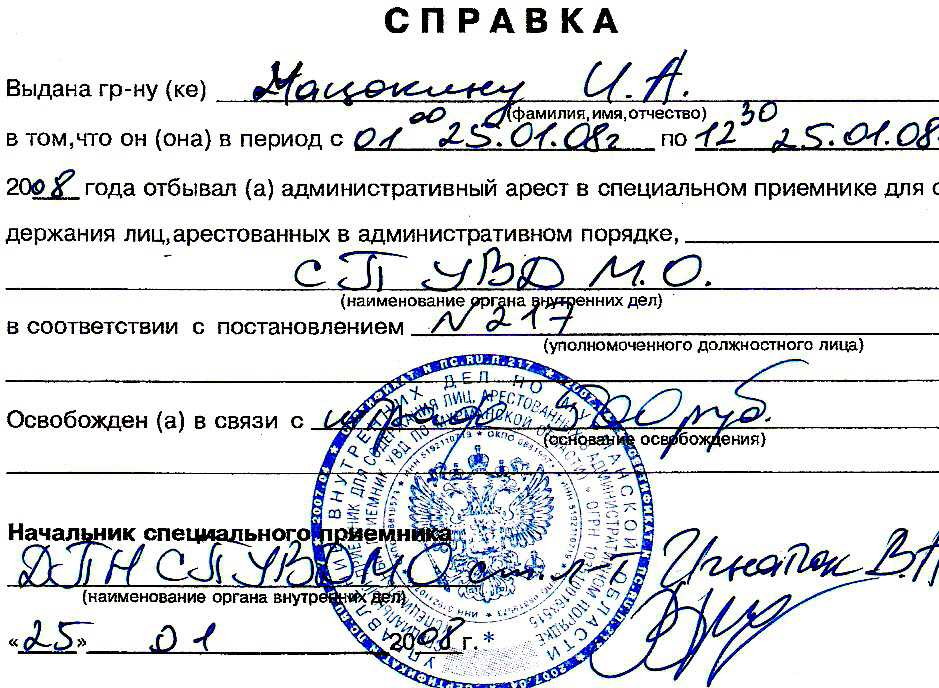 СПРАВКА
Выдана гр-ну (ке) Мацокину И.А.
(фамилия,имя,отчество)
в том,что он (она) в период с 01 00 25.01.08г по 12 30 25.01.08
2008 года отбывал (а) административный арест в специальном приемнике для с
держания лиц,арестованных в административном порядке,
СП УВД М.О.
(наименование органа внутренних дел)
в соответствии с постановлением N217
(уполномоченного должностного лица)
Освобожден (а) в связи с штраф 500 руб.
(основание освобождения)
Начальник специального приемника
ДПН СП УВД МО ст. л-т Игнатюк В.
(наименование органа внутренних дел)
«25» 01 2008 г.